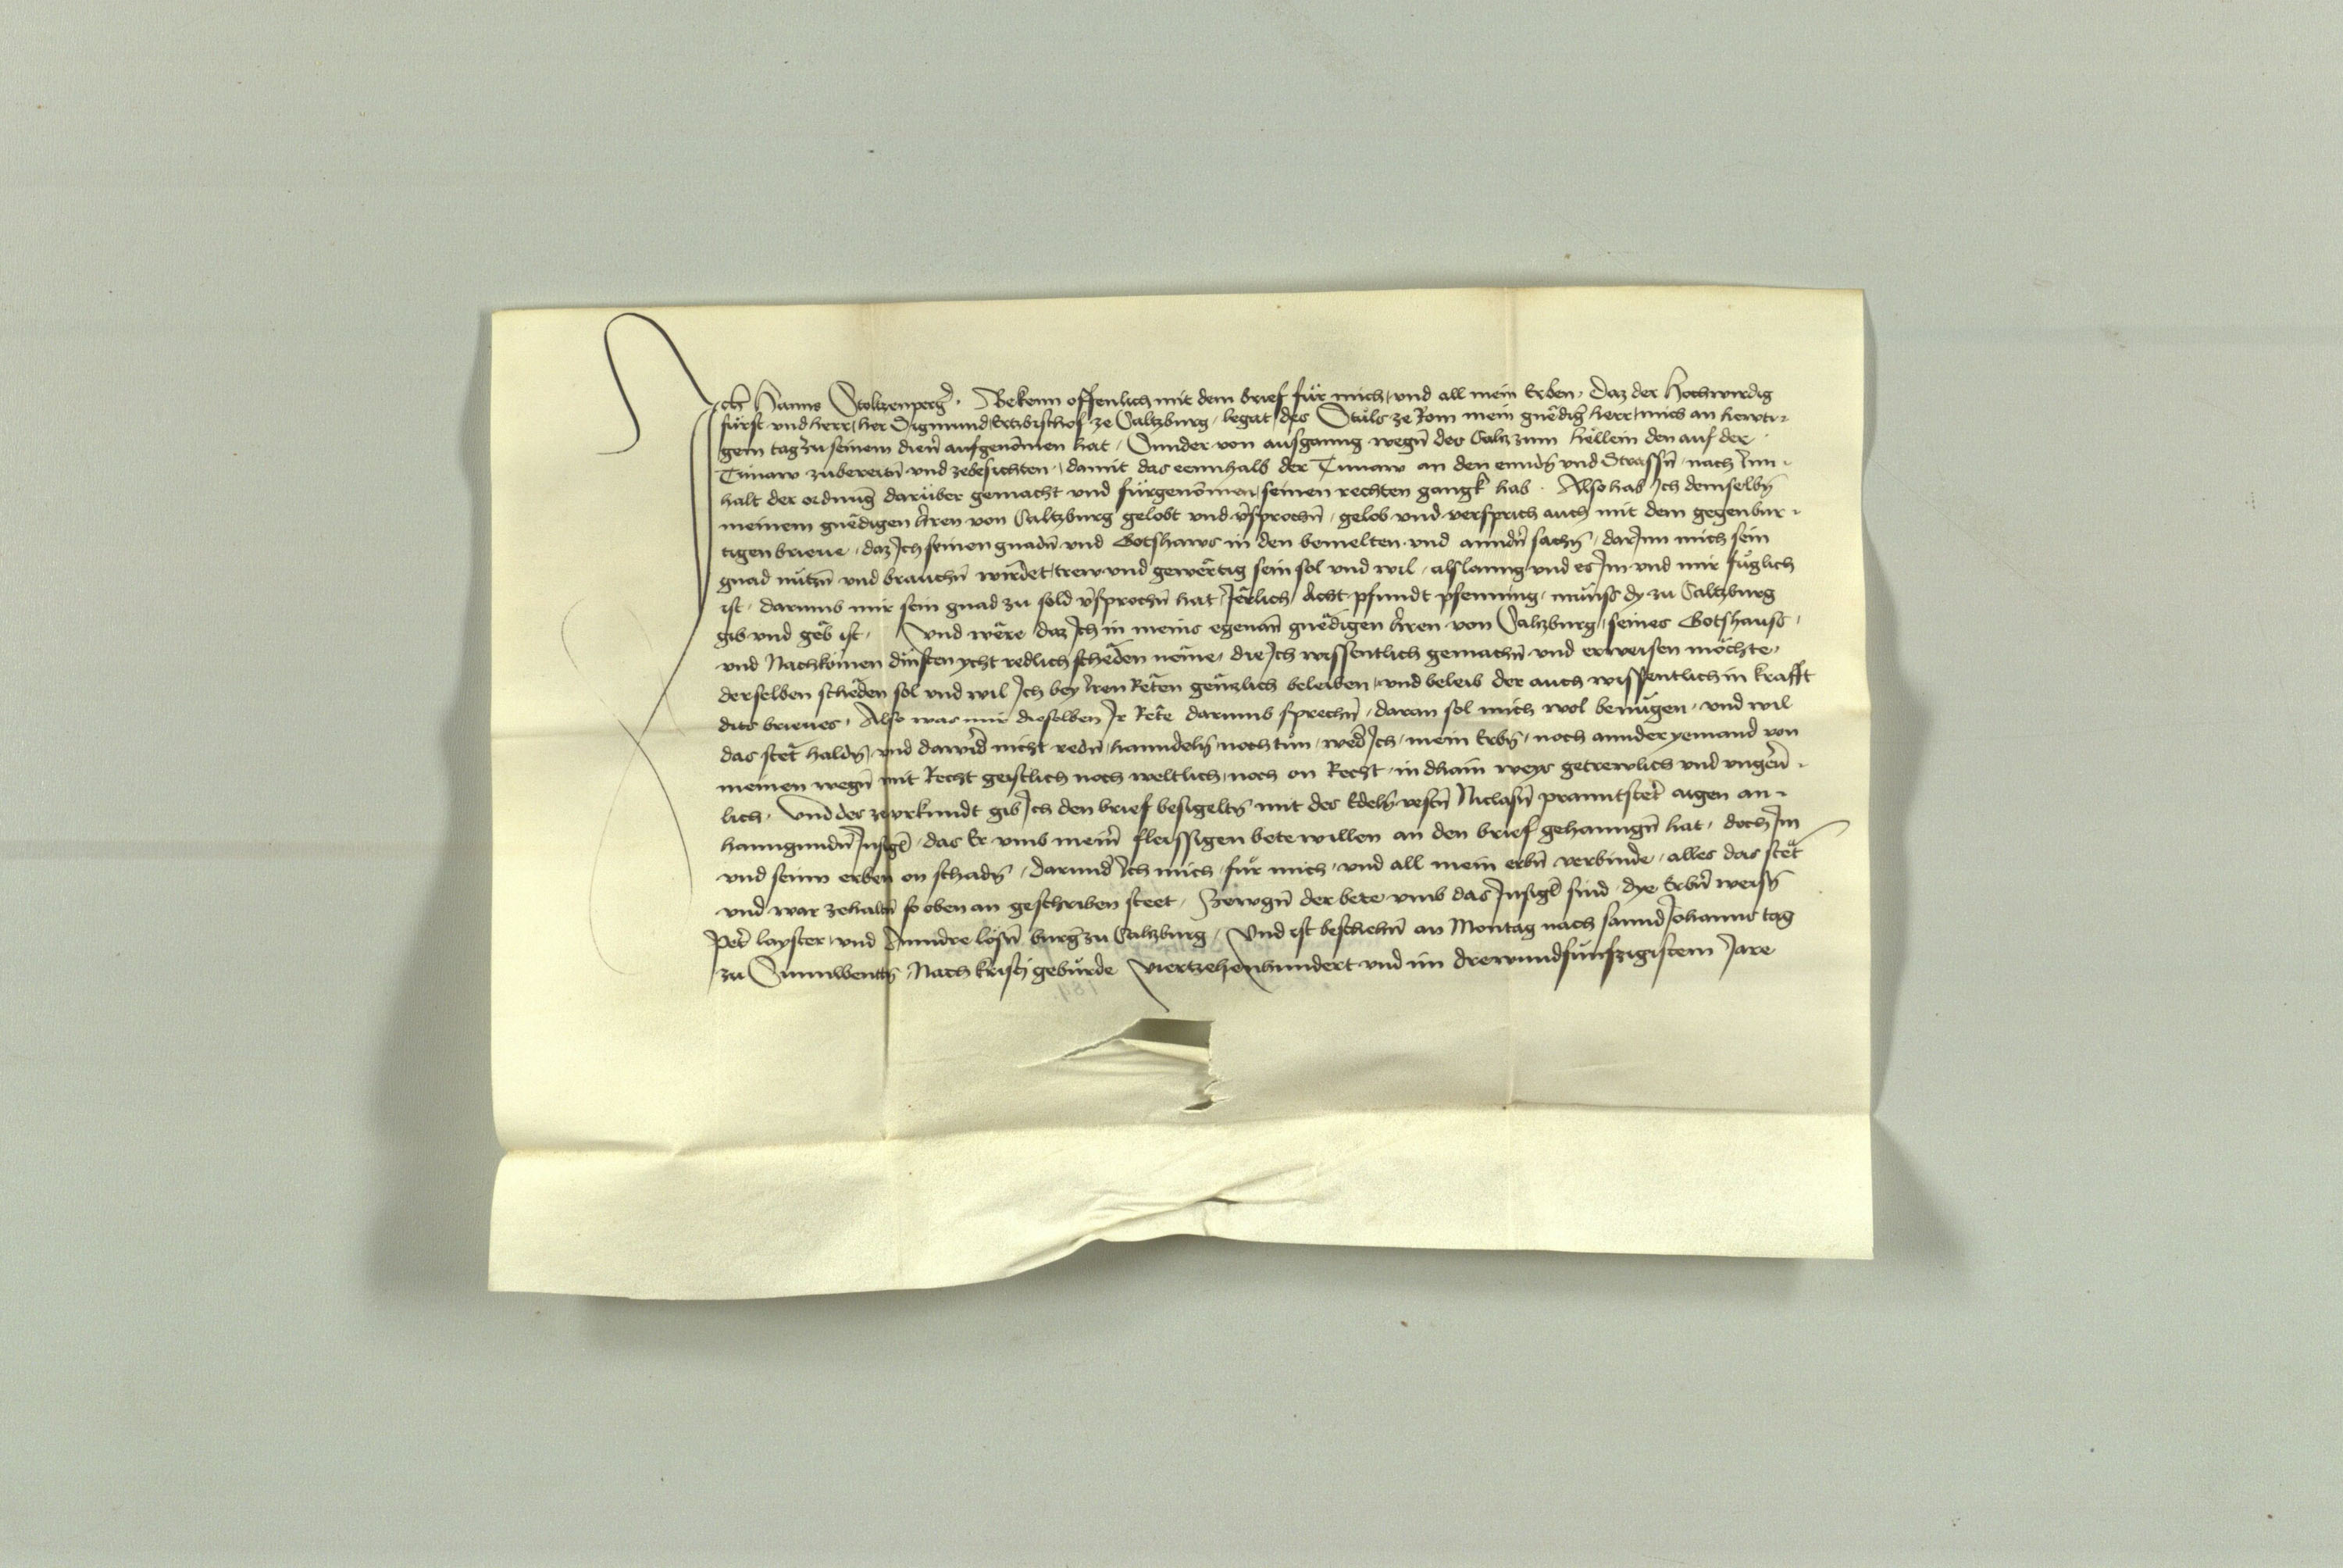 Ich Hanns Stoltzenperger̄. Bekenn offenlich mit dem brief für mich, vnd all mein Erben, Daz der Hochwirdig
fürst vnd herr, her Sigmund, Ertzbischof ze Saltzburg, legat, des Stuls ze Rom mein gnediḡ herr, mich an hewti-
gem tag zu seinem dien̄ aufgenomen hat, Sunder von ausganng wegn̄ des Saltz zum hellein den auf der
Tunaw zubereitn̄ vnd zebesichten, damit das eennhalb der Tunaw an den ennd̄n vnd Strassn̄ nach Inn-
halt der ordnunḡ darüber gemacht vnd fürgenomen, seinen rechten gangk hab. Also hab Ich demselbn̄
meinem gnedigen herren von Saltzburg gelobt vnd v̄sprochn̄, gelob vnd versprich auch mit dem gegenbur-
tigen brieue, daz Ich seinen gnadn̄ vnd Gotshaws in den bemelten vnd annd̄n sachn̄, dar Inn mich sein
gnad nützn̄ vnd brauchn̄ wirdet, trew vnd gewertig sein sol vnd wil, als lanng vnd es Im vnd mir füglich
ist, darumb mir sein gnad zu sold v̄sprochn̄ hat, Jerlich Acht pfundt pfenning, munss dy zu Saltzburg
gib vnd geb ist, Vnd were daz Ich in meins egenan̄ gnedigen herren von Salzburg, seines Gotshauss,
vnd Nachkomen dinsten ycht redlich scheden neme, die Ich wissentlich gemachn̄ vnd erweisen möchte,
derselben scheden sol vnd wil Ich bey Iren Reten genzlich beleiben, vnd beleib der auch wissentlich in krafft
dits brieues, Also was mir dieselben Ir Rete darumb sprechn̄, daran sol mich wol benügen, vnd wil
das stet haldn̄, vnd dawid̄ nicht redn̄, hanndeln̄, noch tun, wed̄ Ich, mein Erbn̄, noch annder yemand von
meinen wegn̄ mit Recht geistlich noch weltlich, noch on Recht, in dhain weys getrewlich vnd vngeu̅-
lich. Vnd des ze vrkundt gib Ich den brief besigeltn̄ mit des Edeln̄ vestn̄ Niclasn̄ pranntstet̄ aigen an-
hanngundn̄ Insigl̄, das Er vmb mein̄ fleissigen bete willen an den brief gehanngn̄ hat, doch Im
vnd seinn erben on schadn̄, Darund̄ Ich mich, für mich, vnd all mein erbn̄ verbinde, alles das stet
vnd war zehaltn̄ so oben an geschriben steet, Zewgn̄ der bete vmb das Insigl̄ sind, dye Erbn̄ weisn̄
Pet̄ layster, vnd Anndre lösn̄ burḡ zu Salzburg, Vnd ist beschehn̄ an Montag nach sannd Johanns tag
zu Sunnwentn̄, Nach kristi geburde Viertzehenhundert vnd im drewundfunfzigistem Jare